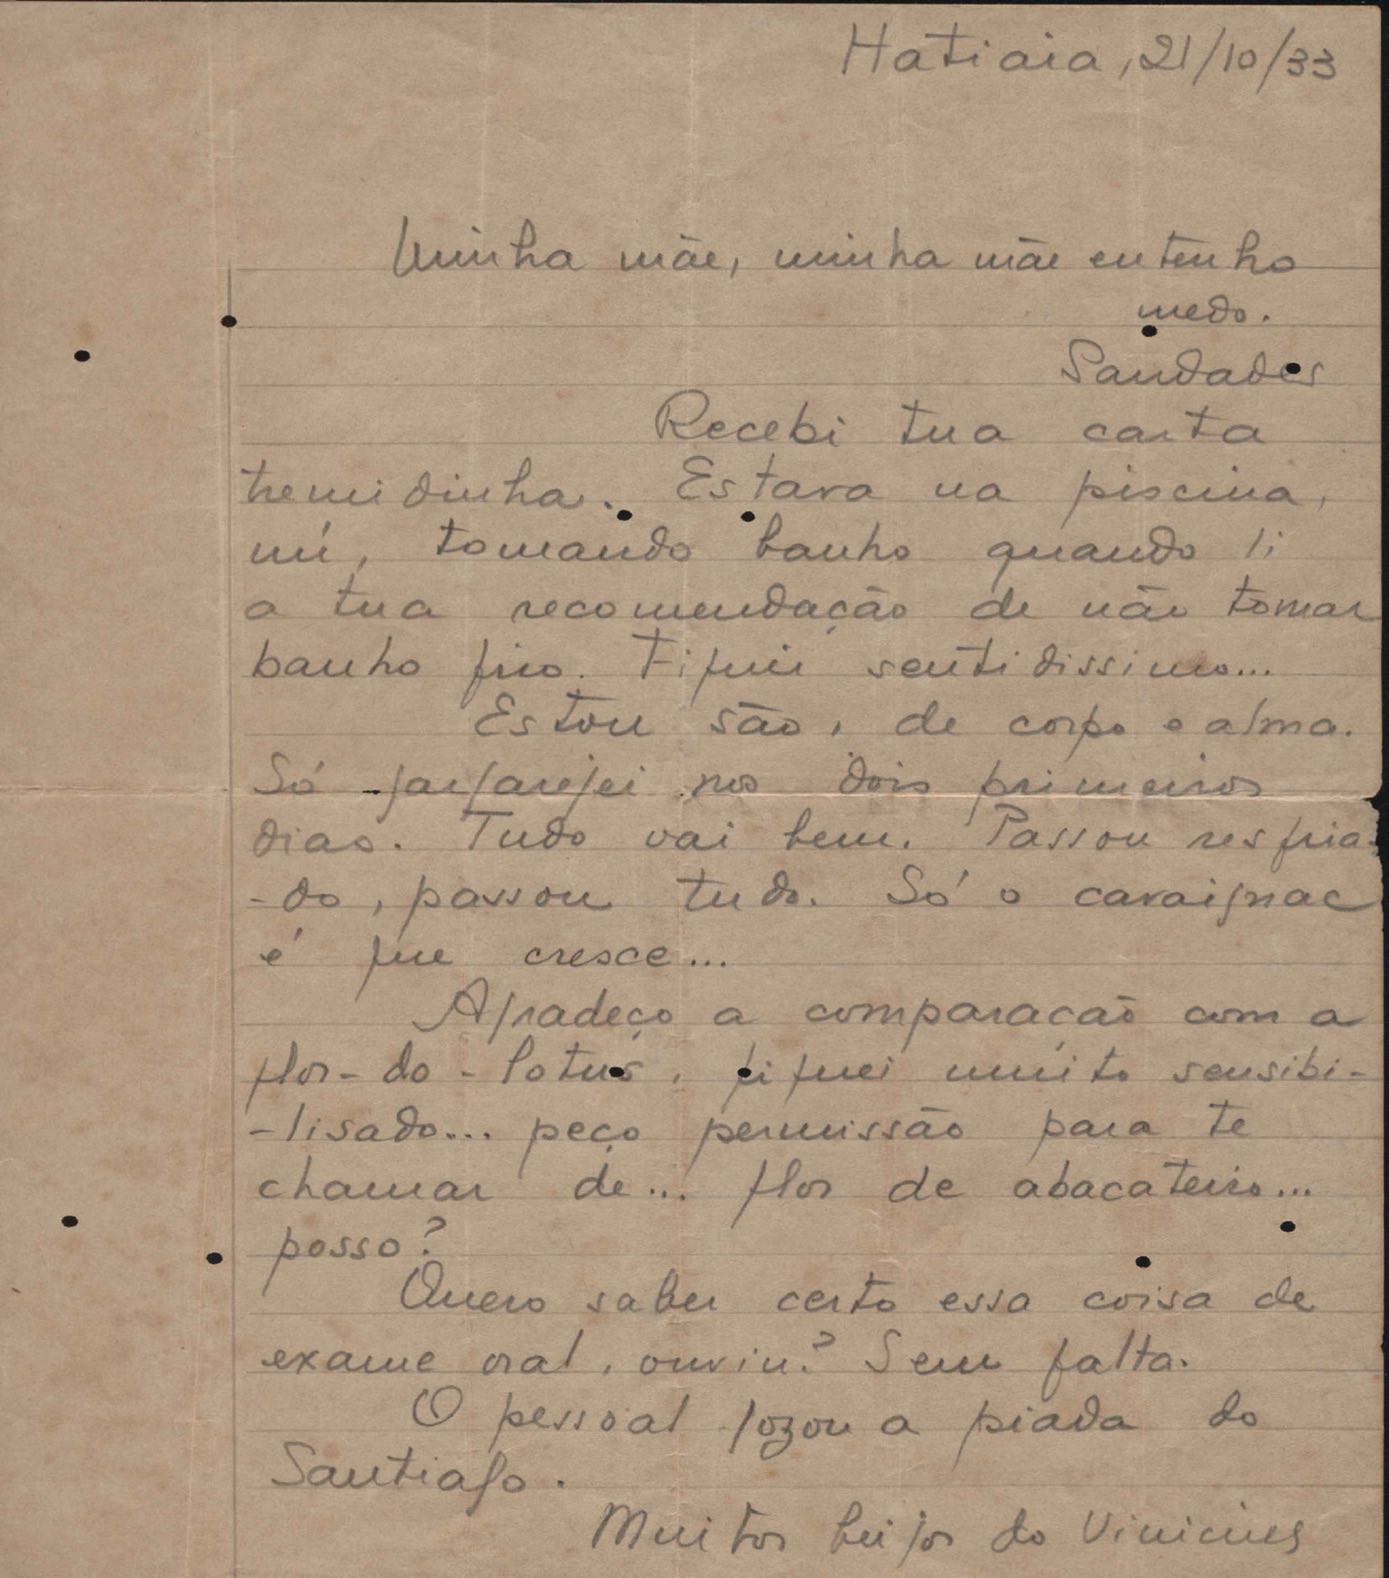 Hatiaia, 21/10/33
Minha mãe, minha mãe eu tenho
medo.
Saudades
Recebi tua carta
tremidinha. Estava na piscina,
nú, tomando banho quando li
a tua recomendação de não tomar
banho frio. Fiquei sentidissimo...
Estou são, de corpo e alma.
Só gargarejei nos dois primeiros
dias. Tudo vai bem. Passou resfria-
-do, passou tudo. Só o cavaignac
é que cresce...
Agradeço a comparação com a
flor-do-lotus, fiquei muito sensibi-
-lisado... peço permissão para te
chamar de... flor de abacateiro...
posso?
Quero saber certo essa coisa de
exame oral, ouviu? Sem falta.
O pessoal gozou a piada do
Santiago.
Muitos beijos do Vinicius